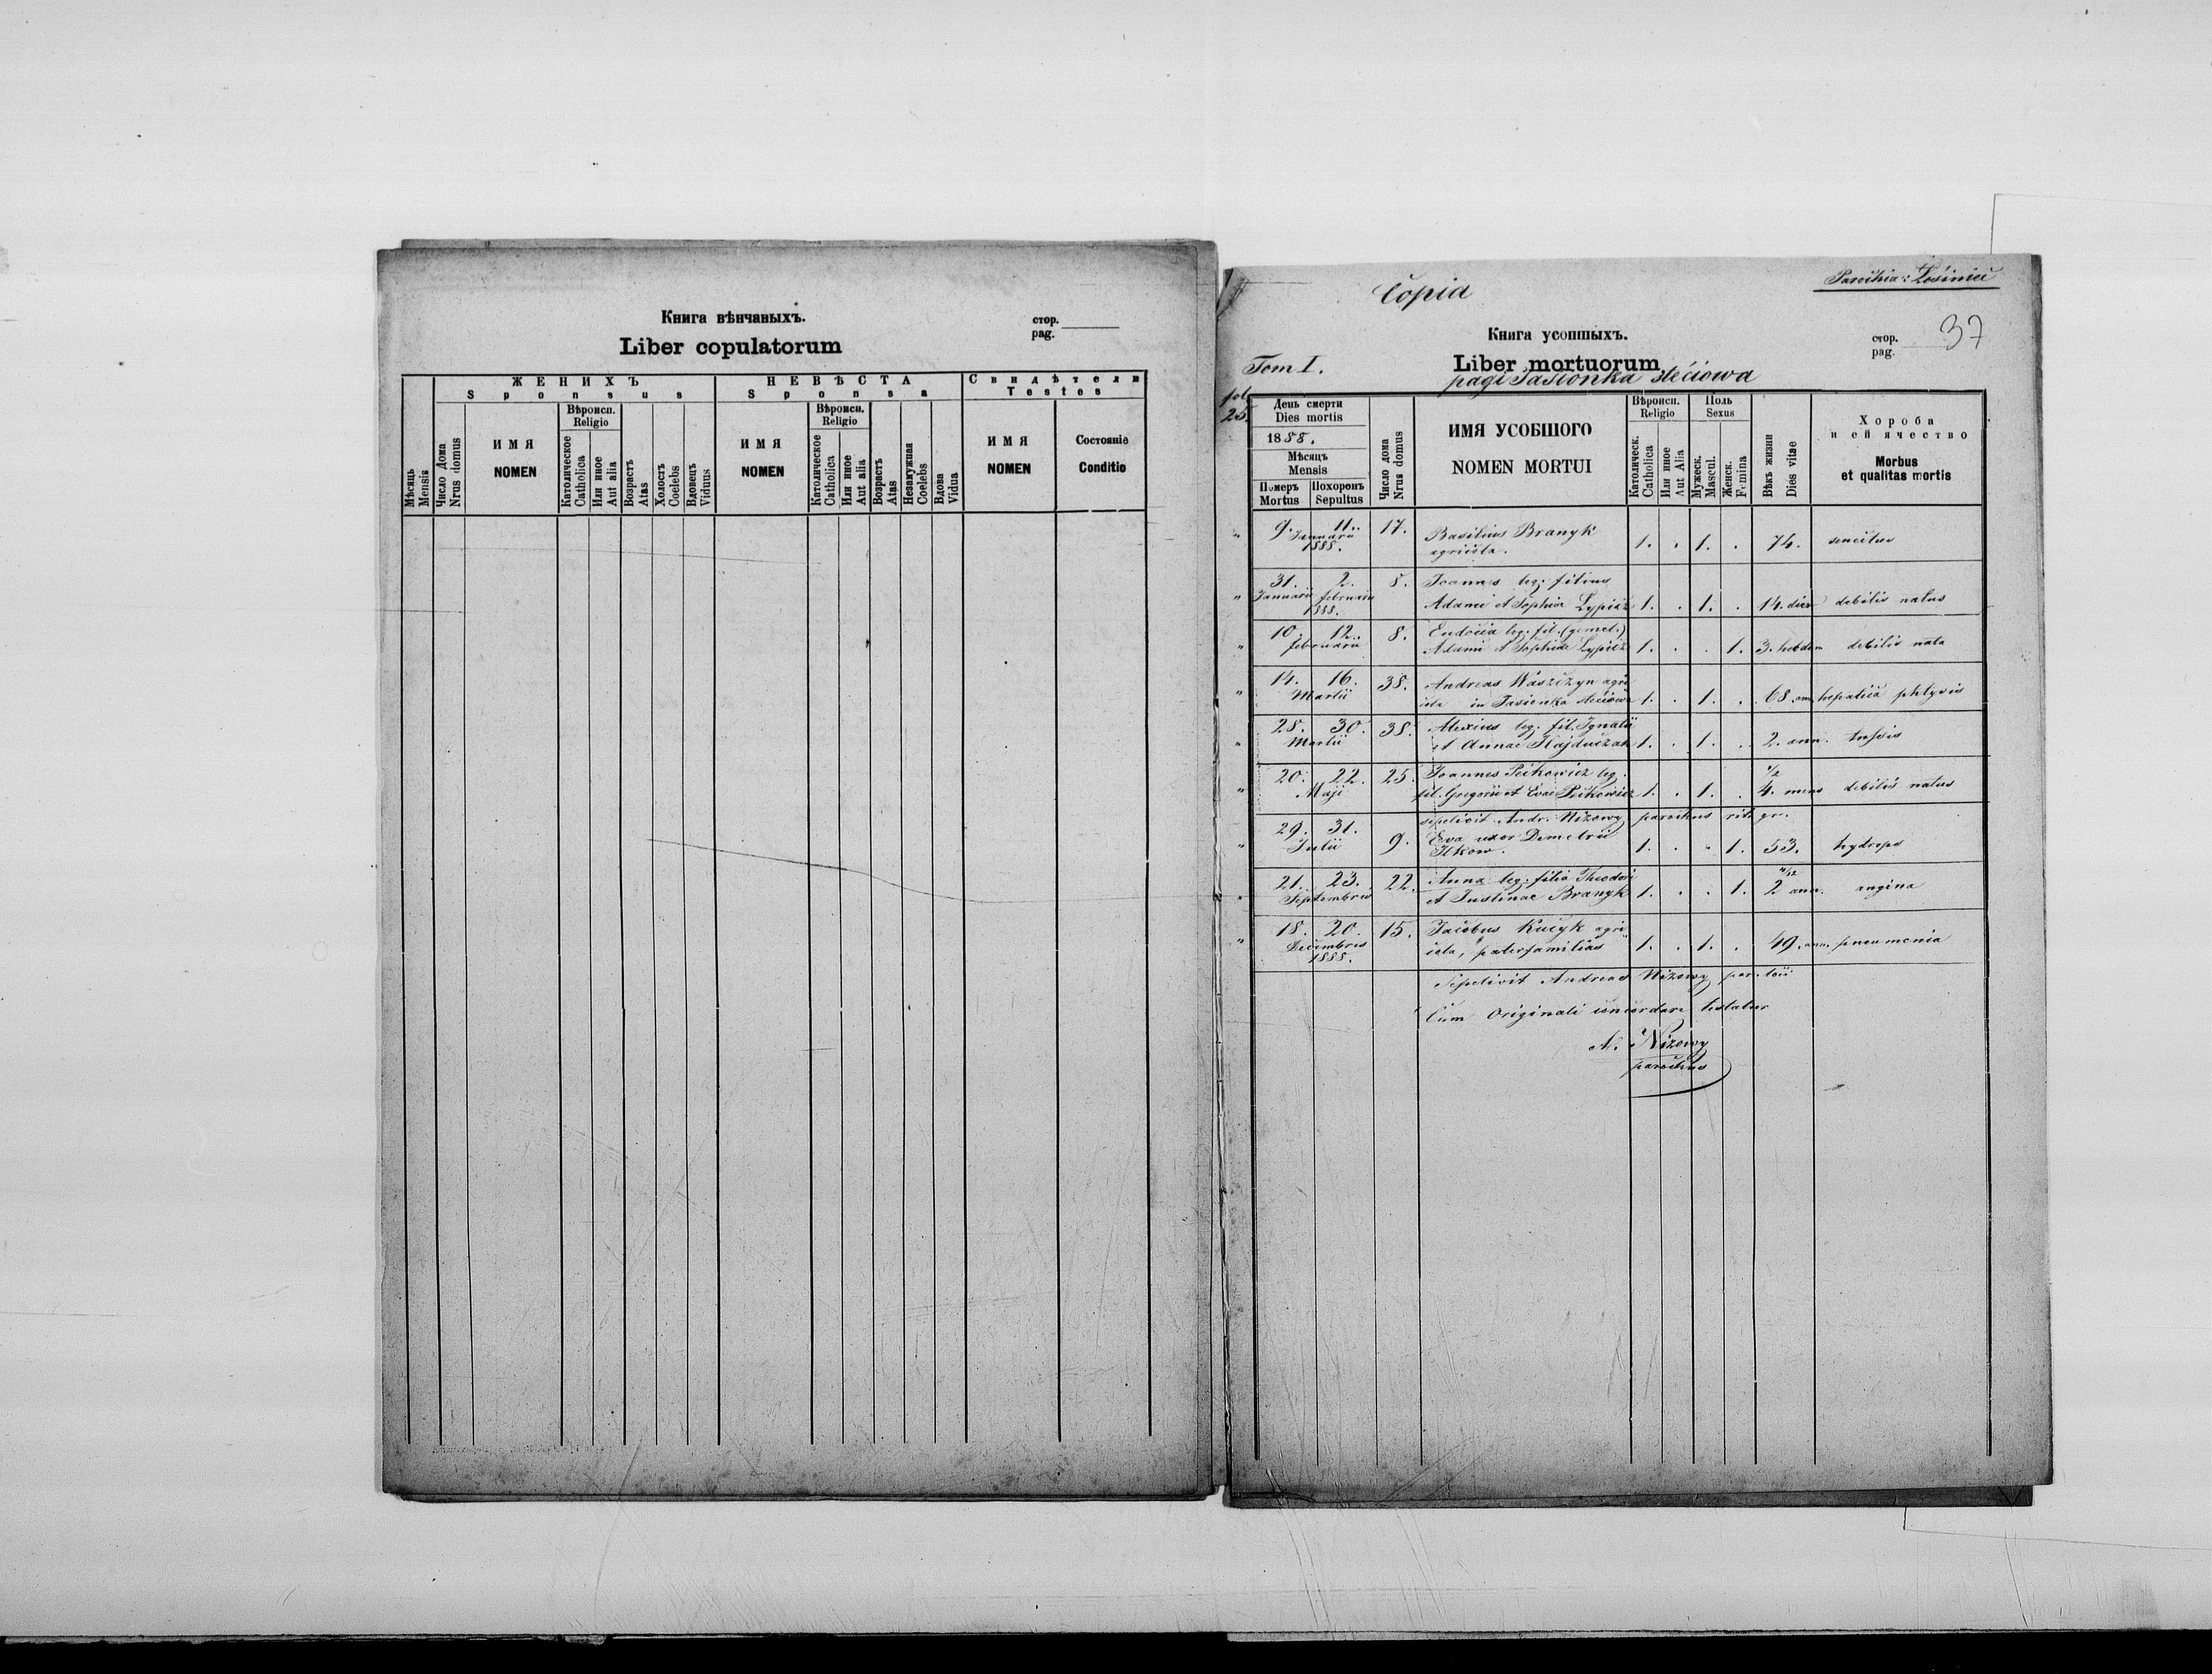 Книга вѣнчаныхъ.
стор.
pag.
Liber copulatorum
Ж Е Н И Х Ъ
S p o n s u s
Н Е В Ѣ С Т А
S p o n s a
С в и д ѣ т е л и
T e s t e s
Мѣсяць
Mensis
Число Дома
Nrus domus
И М Я
NOMEN
Вѣроисп.
Religio
Католическое
Catholica
Или иное
Aut alia
Возрастъ
Atas
Холостъ
Coelebs
Вдовецъ
Viduus
И М Я
NOMEN
Вѣроисп.
Religio
Католическое
Catholica
Или иное
Aut alia
Возрастъ
Atas
Незамужная
Coelebs
Вдова
Vidua
И М Я
NOMEN
Состояніе
Conditio
Copia
Parochia: Łosiniec
Книга усопшыхъ.
стор.
pag.
37
Tom I.
Liber mortuorum
pagi Jasionka steciowa
fol.
25.
День смерти
Dies mortis
1888.
Мѣсяцъ
Mensis
Померъ
Mortus
Похоренъ
Sepultus
Число дома
Nrus domus
ИМЯ УСОБШОГО
NOMEN MORTUI
Вѣроисп.
Religio
Католическ.
Catholica.
Или иное
Aut Alia
Поль
Sexus
Мужеск.
Mascul.
Женск.
Femina
Вѣкъ жизни
Dies vitae
Х о р о б а
и е й я ч е с т в о
Morbus
et qualitas mortis
" 9. 11. 17. Basilius Branyk
Januarii
1888. agricola. 1. . 1. . 74. senectus
31. 2. 8. Joannes leg: filius
" Januarii februarii Adami et Sophiae Lypicz 1. . 1. . 14. dier debilis natus
1888.
10. 12. 8. Eudocia leg. fil. (gemel.)
" februarii Adami et Sophiae Lypicz 1. . . 1. 3. hebdom debilis nata
14. 16. 38. Andreas Waszczyn agri
" Martii cola in Jasienka steciowa 1. . 1. . 68. ann hepatica phtysis
28. 30. 38. Alexius leg. fil. Ignatii
" Martii et Annae Hajduczak 1. . 1. . 2. ann. tussis
20. 22. 25. Joannes Petkowicz leg. 1/2
" Maji fil. Gregorii et Evae Petkowicz 1. . 1. . 4. mens debilis natus
sepelivit Andr. Nizowy parochus rit. gr.
29. 31. 9. Eva uxor Demetrii
" Julii Ilkow. 1. . . 1. 53. hydrops
21. 23. 22. Anna leg. filia Theodori
" Septembris et Justinae Branyk 1. . . 1. 2 ann. angina
18. 20. 15. Jacobus Kucyk agri
" Decembris cola, paterfamilias 1. . 1. . 49. ann. pneumonia
1888.
Sepelivit Andreas Nizowy par. loci
Cum Originali concordare testatur
A. Nizowy
parochus